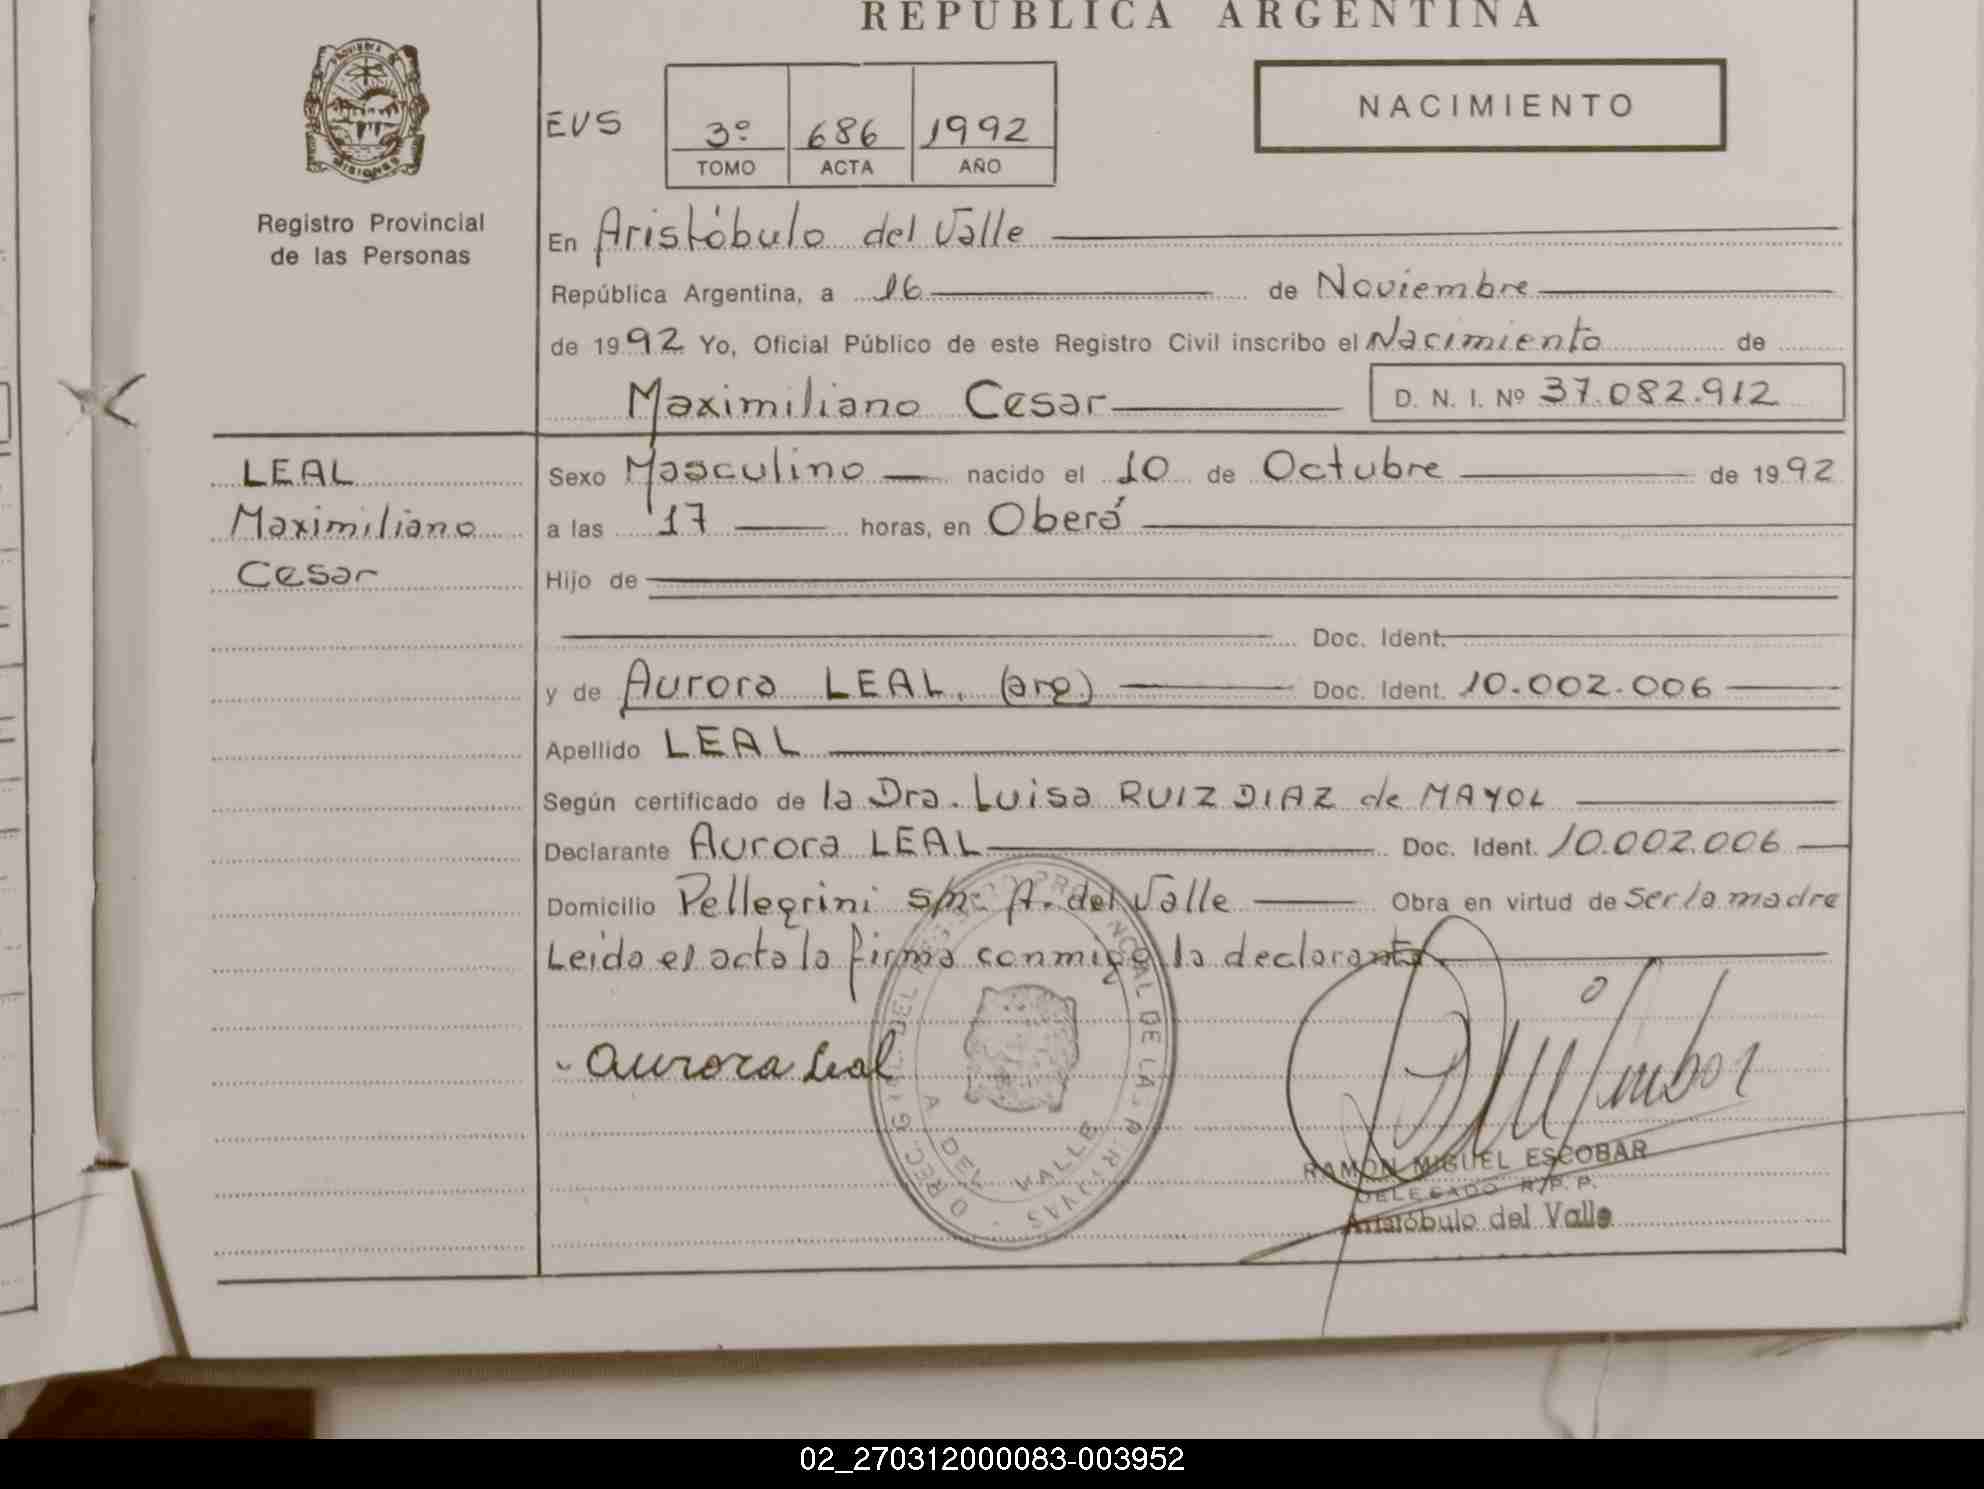 REPUBLICA ARGENTINA
PROVINCIA DE MISIONES
Registro Provincial
de las Personas
EVS
3º 686 1992
TOMO ACTA AÑO
NACIMIENTO
En Aristóbulo del Valle
República Argentina, a 16 de Noviembre
de 1992 Yo, Oficial Público de este Registro Civil inscribo el Nacimiento de
Maximiliano Cesar D. N. I. Nº 37.082.912
LEAL
Maximiliano
Cesar
Sexo Masculino nacido el 10 de Octubre de 1992
a las 17 horas, en Oberá
Hijo de
Doc. Ident.
y de Aurora LEAL. (arg) Doc. Ident. 10.002.006
Apellido LEAL
Según certificado de la Dra. Luisa RUIZ DIAZ de MAYOL
Declarante Aurora LEAL Doc. Ident. 10.002.006
Domicilio Pellegrini s/nº A. del Valle Obra en virtud de ser la madre
Leida el acta la firma conmigo la declarante
Aurora Leal
A DEL VALLE
RAMON MIGUEL ESCOBAR
DELEGADO R.P.P.
Aristóbulo del Valle
02_270312000083-003952